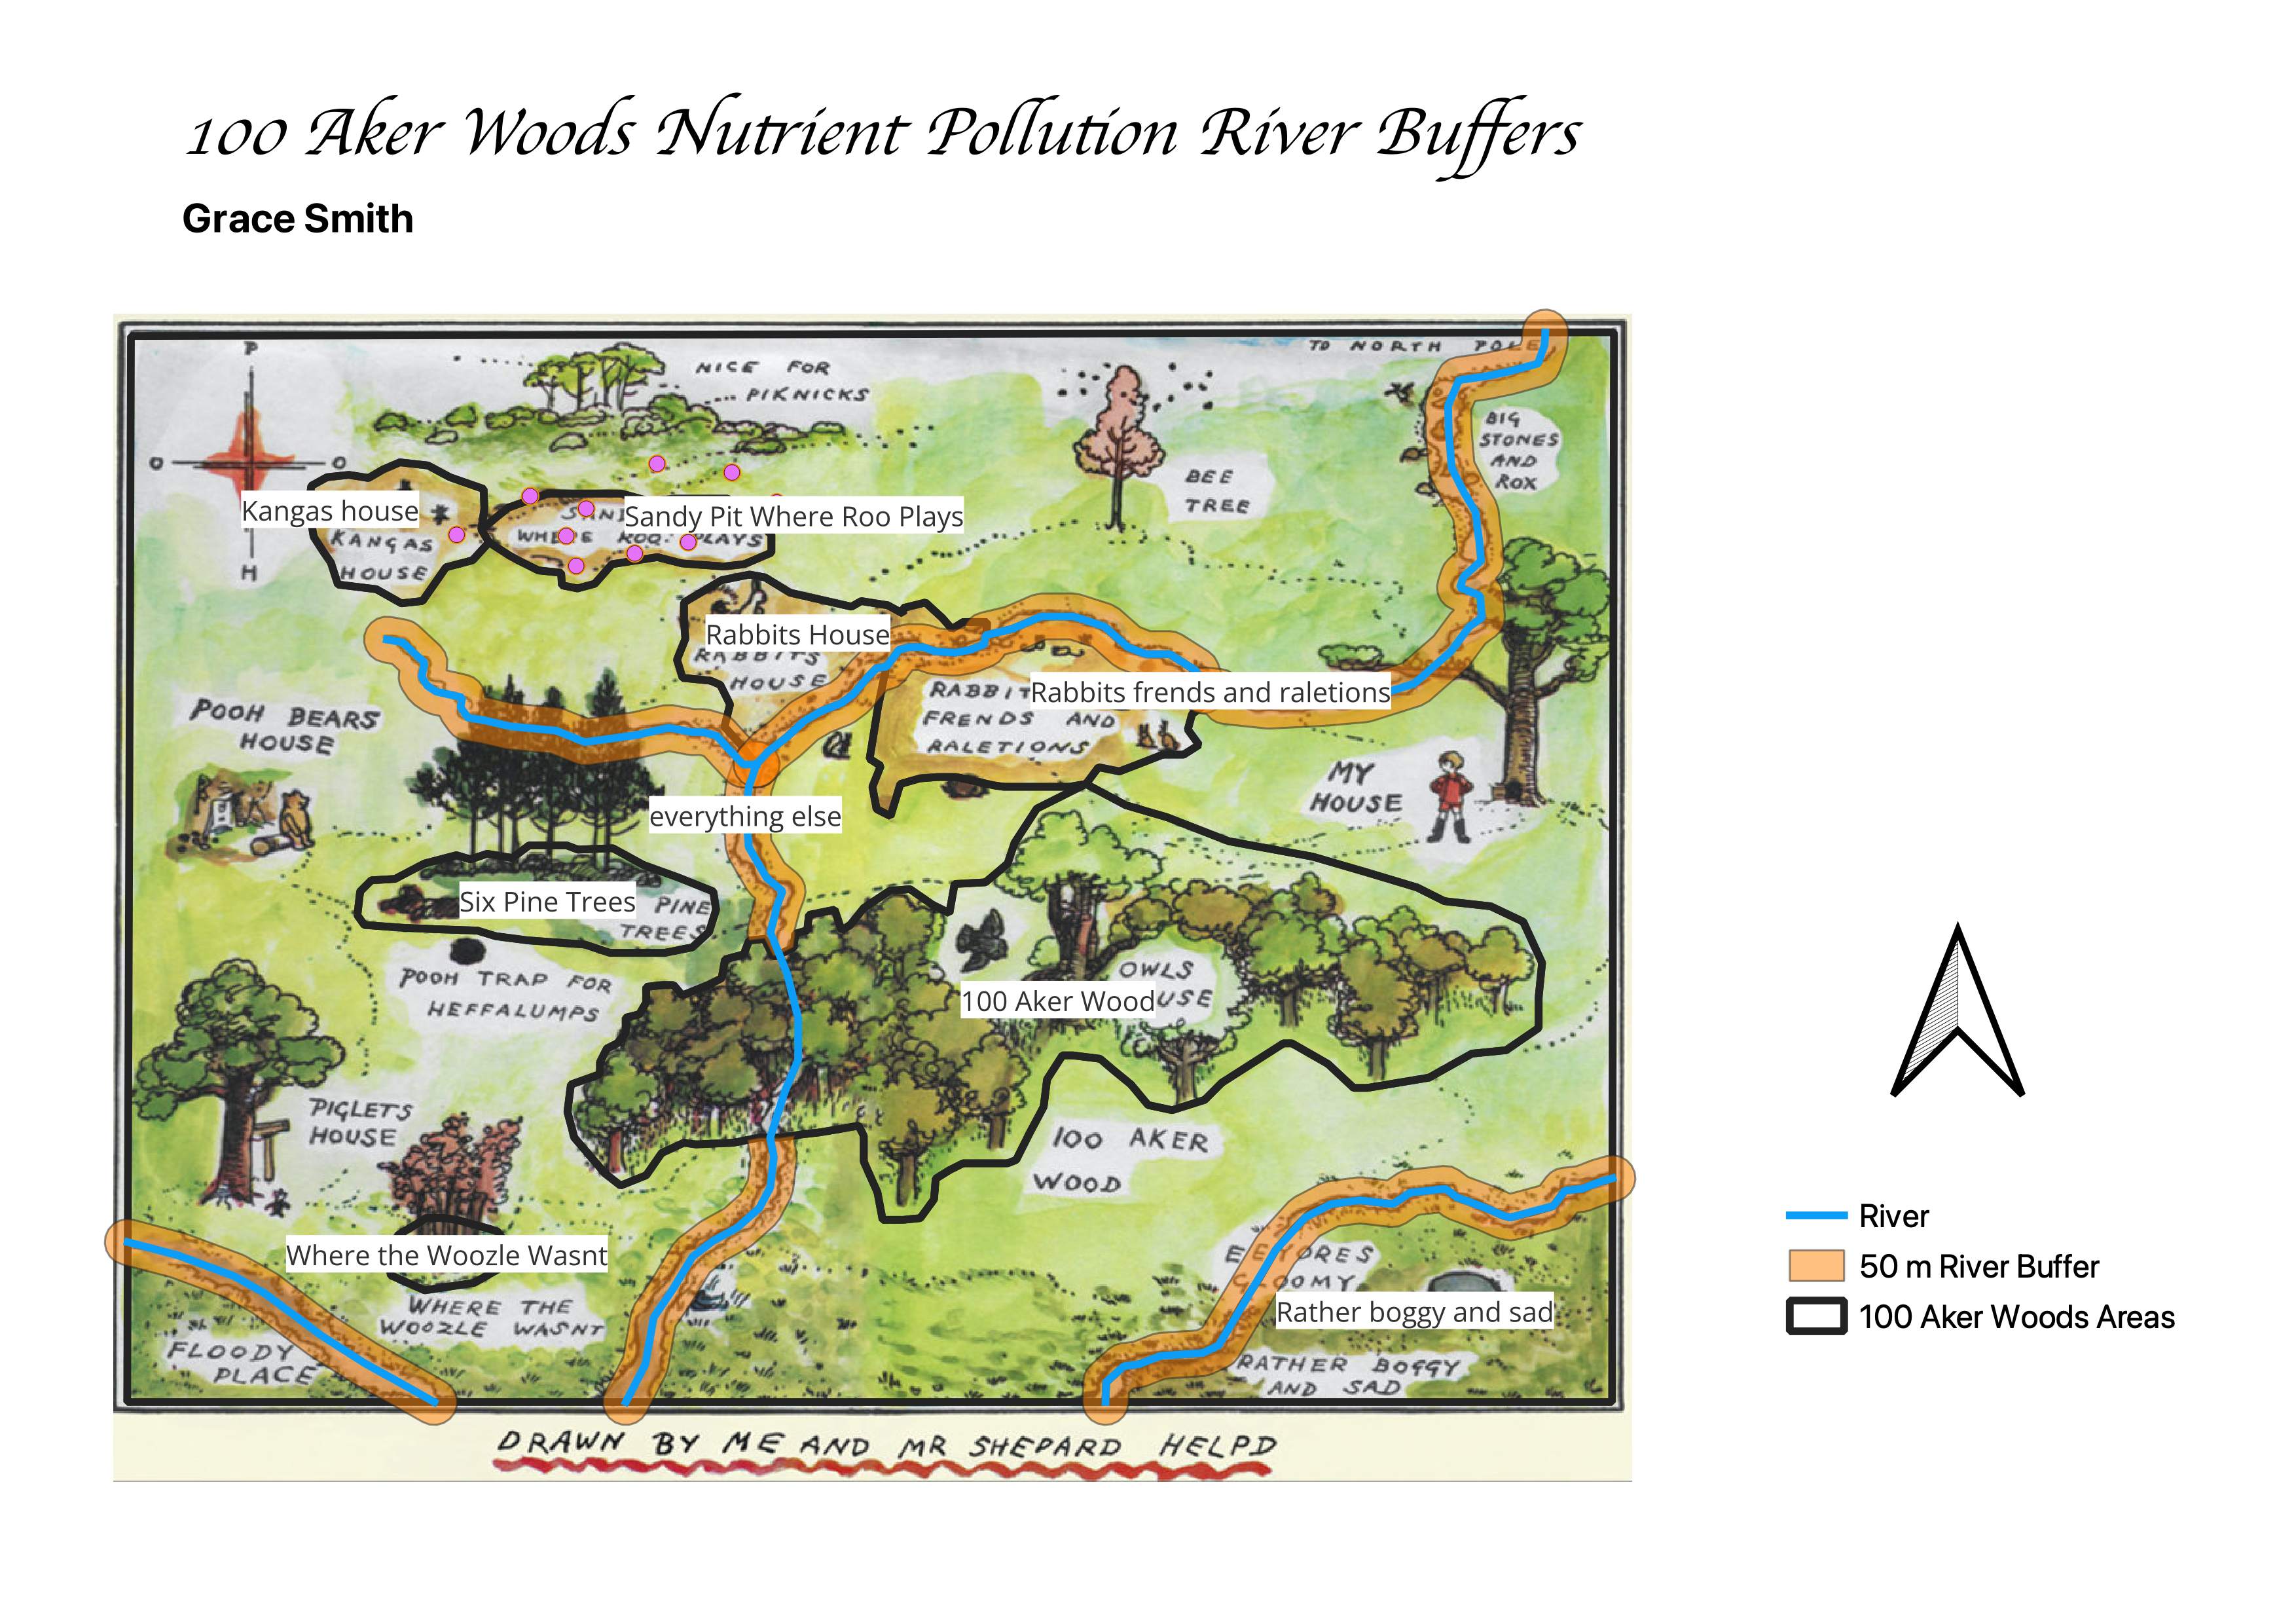 100 Aker Woods Nutrient Pollution River Buffers
Grace Smith
P
TO NORTH POLE
NICE FOR
PIKNICKS
BIG
STONES
AND
ROX
O
O
BEE
TREE
Kangas house
KANGAS
HOUSE
H
Sandy Pit Where Roo Plays
ROO PLAYS
Rabbits House
RABBITS
HOUSE
Rabbits frends and raletions
FRENDS AND
RALETIONS
POOH BEARS
HOUSE
MY
HOUSE
everything else
Six Pine Trees
PINE
TREES
POOH TRAP FOR
HEFFALUMPS
OWLS
100 Aker Wood
PIGLETS
HOUSE
100 AKER
WOOD
Where the Woozle Wasnt
WHERE THE
WOOZLE WASNT
EEYORES
GLOOMY
Rather boggy and sad
FLOODY
PLACE
RATHER BOGGY
AND SAD
DRAWN BY ME AND MR SHEPARD HELPD
River
50 m River Buffer
100 Aker Woods Areas